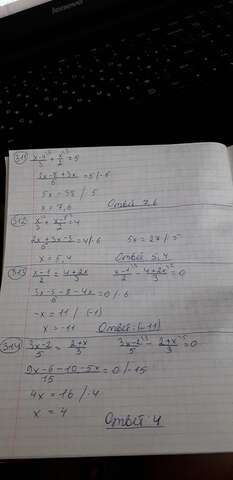 311 x-4/3 + x/2 = 5
2x-8+3x/6 = 5 /·6
5x = 38 /:5
x = 7,6 Ответ 7,6
312 x/3 + x-1/2 = 4
2x+3x-3/6 = 4 /·6 5x = 27 /:5
x = 5,4 Ответ 5,4
313 x-1/2 = 4+2x/3 x-1/2 - 4+2x/3 = 0
3x-3-8-4x/6 = 0 /·6
-x = 11 /·(-1)
x = -11 Ответ: (-11)
314 3x-2/5 = 2+x/3 3x-2/5 - 2+x/3 = 0
9x-6-10-5x/15 = 0 /·15
4x = 16 /:4
x = 4
Ответ: 4